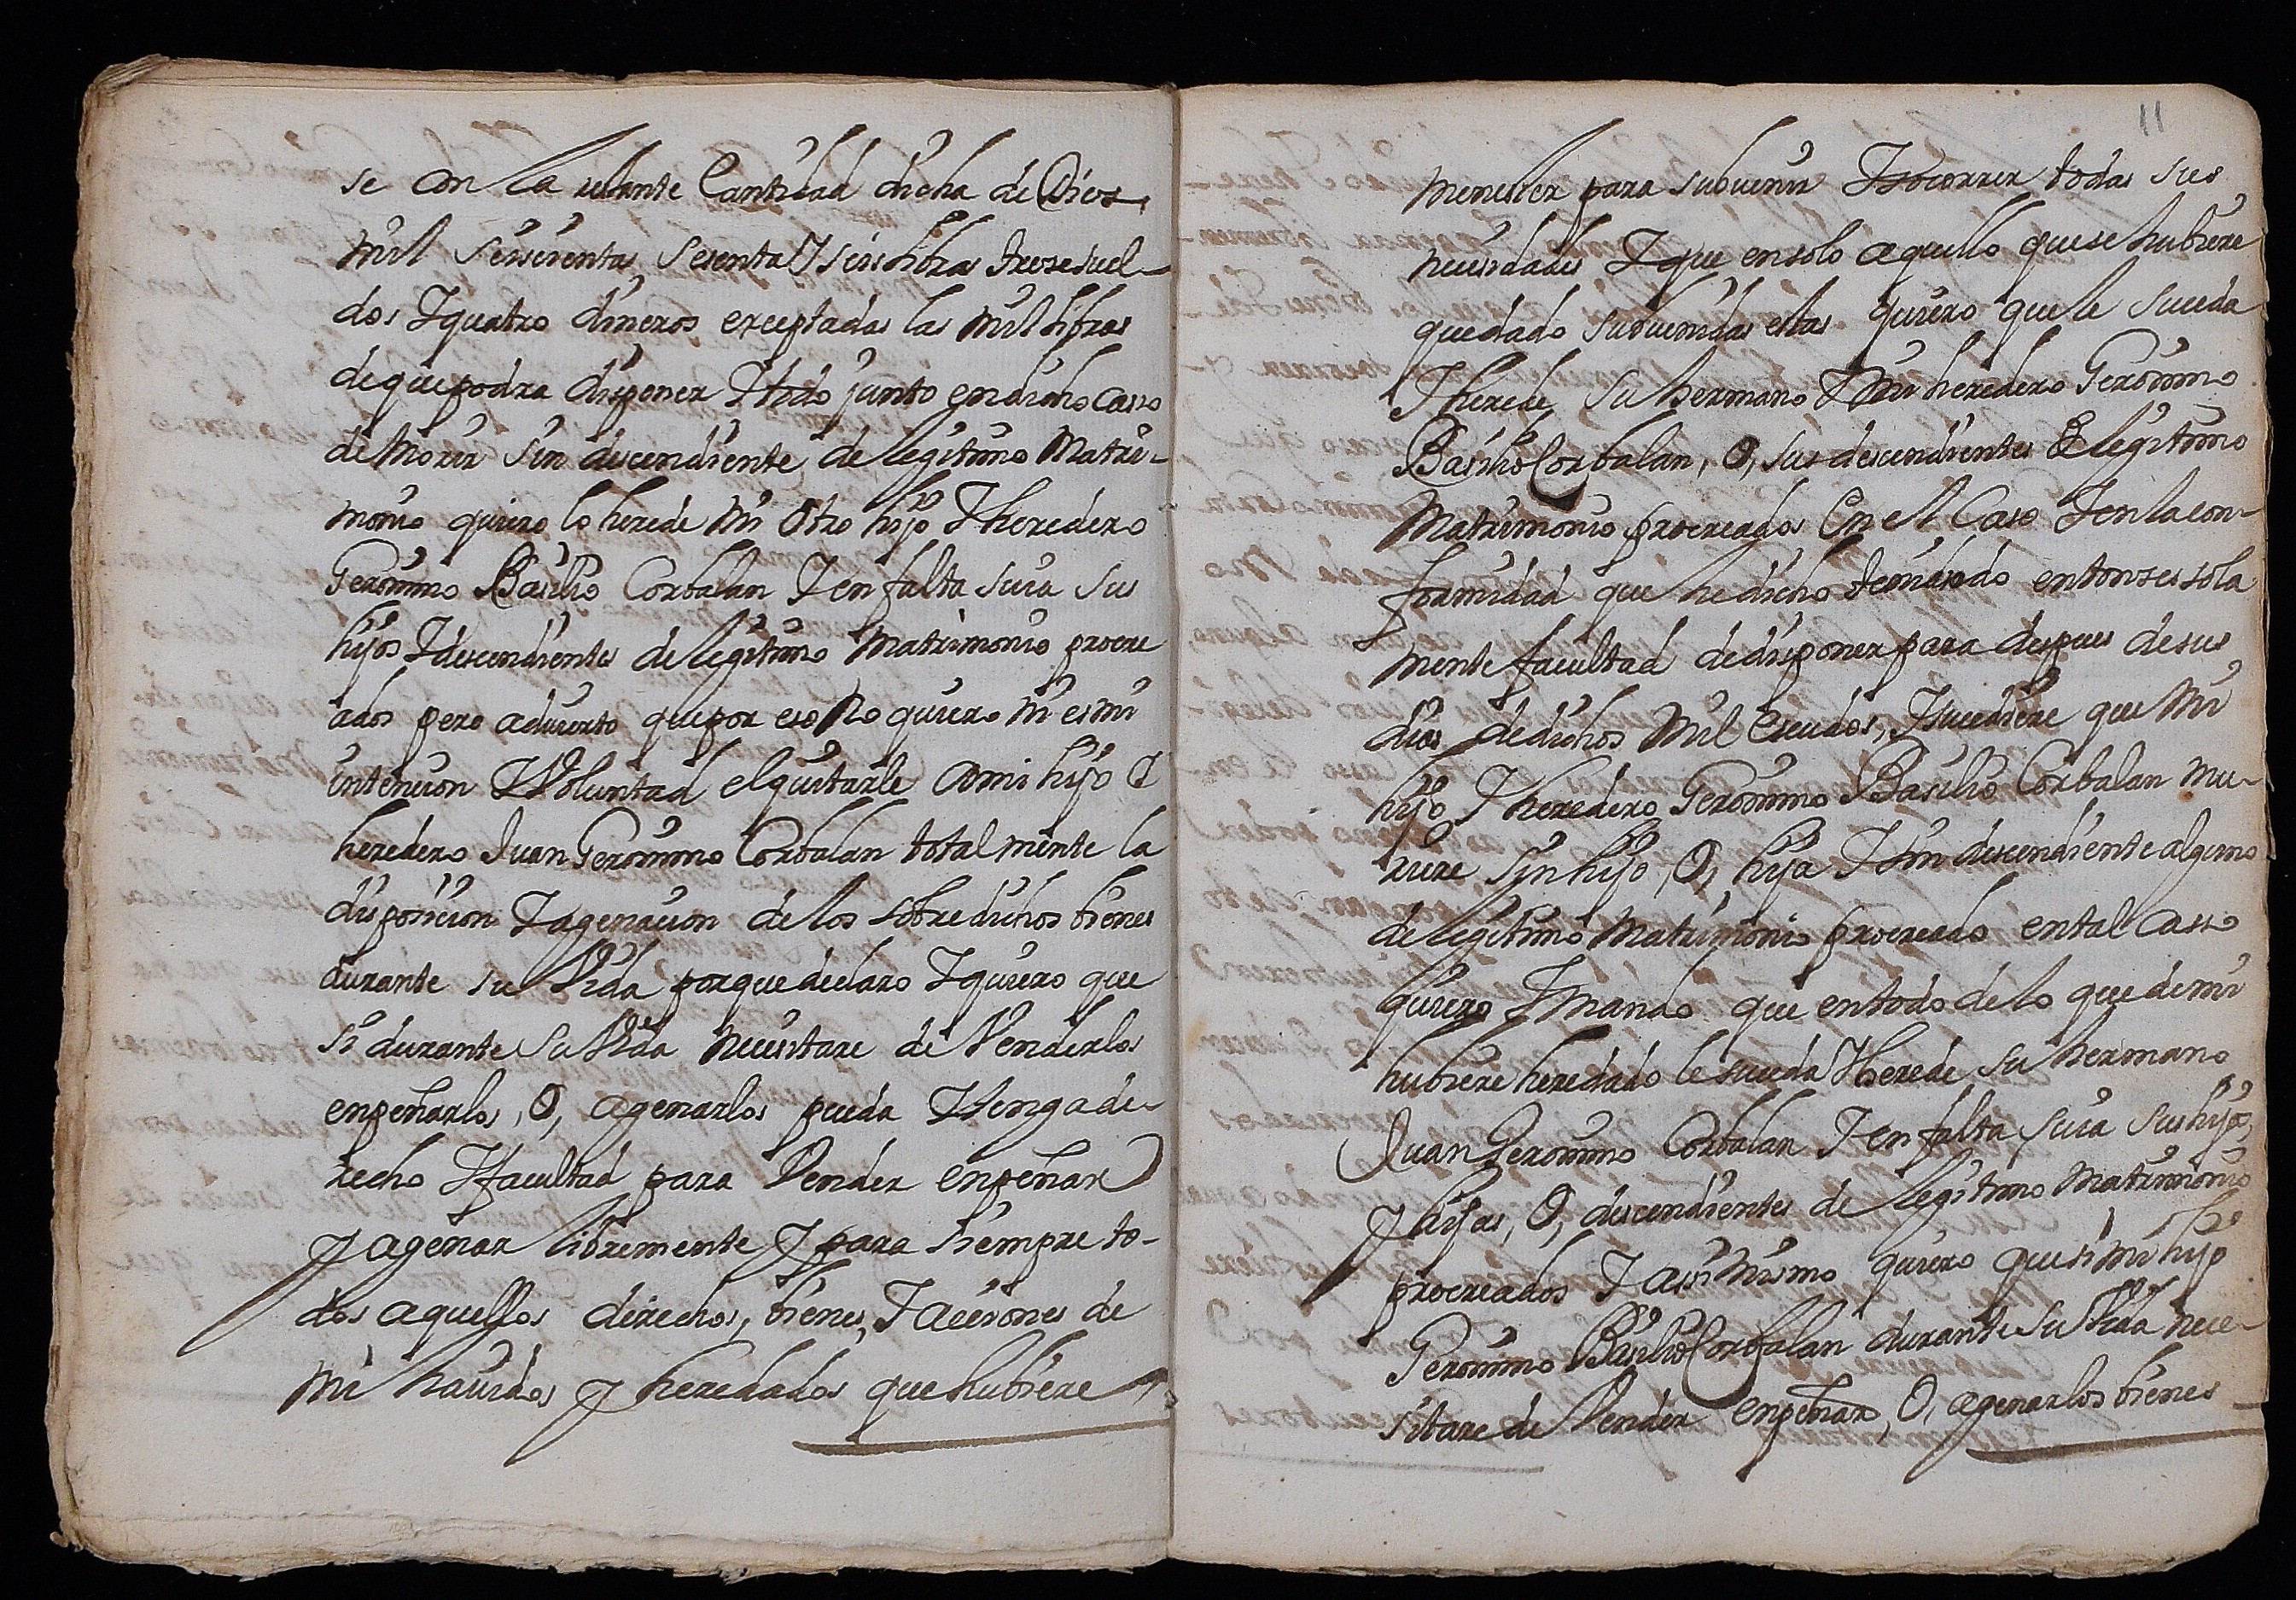 se con la restante Cantidad dicha de Diez
mil seiscientas sesenta y seis libras trese suel-
dos Y quatro dineros exceptadas las mil libras
de que podra disponer Y todo junto en dicho casso
de morir sin descendiente de legitimo Matri-
monio quiero lo herede mi otro hijo Y heredero
Geronimo Basilio Corbalan Y en falta suia sus
hijos Y descendientes de legitimo Matrimonio procre
ados pero advierto que por eso no quiero ni es mi
intencion Y Voluntad el quitarle a mi hijo Y
heredero Juan Geronimo Corbalan totalmente la
disposicion Y agenacion de los sobredichos bienes
durante su Vida porque declaro Y quiero que
si durante su Vida necesitare de Venderlos
enpeñarlos, O, agenarlos pueda Y tenga de-
recho Y facultad para Vender enpeñar
Y agenar libremente Y para siempre to-
dos aquellos derechos, bienes, Y acciones de
mi havidos Y heredados que hubiere
11
menester para subvenir Y socorrer todas sus
necesidades Y que en solo aquello que se hubiere
quedado subvenidas estas quiero que le suceda
Y herede su hermano Y mi heredero Geronimo
Basilio Corbalan, O, sus descendientes de legitimo
Matrimonio procreados En el Caso Y en la con-
formidad que he dicho teniendo entonses sola
mente facultad de disponer para despues de sus
dias de dichos Mil escudos, Y sucediere que Mi
hijo Y heredero Geronimo Basilio Corbalan mu-
riere sin hijo, O, hija Y sin descendiente alguno
de legitimo Matrimonio procreado en tal casso
quiero Y mando que en todo de lo que de mi
hubiere heredado le suceda Y herede su hermano
Juan Geronimo Corbalan Y en falta suia sus hijos,
Y hijas, O, descendientes de legitimo Matrimonio
procreados Y assi mismo quiero que si mi hijo
Geronimo Basilio Corbalan durante su Vida nece-
sitare de Vender enpeñar, O, agenar los bienes